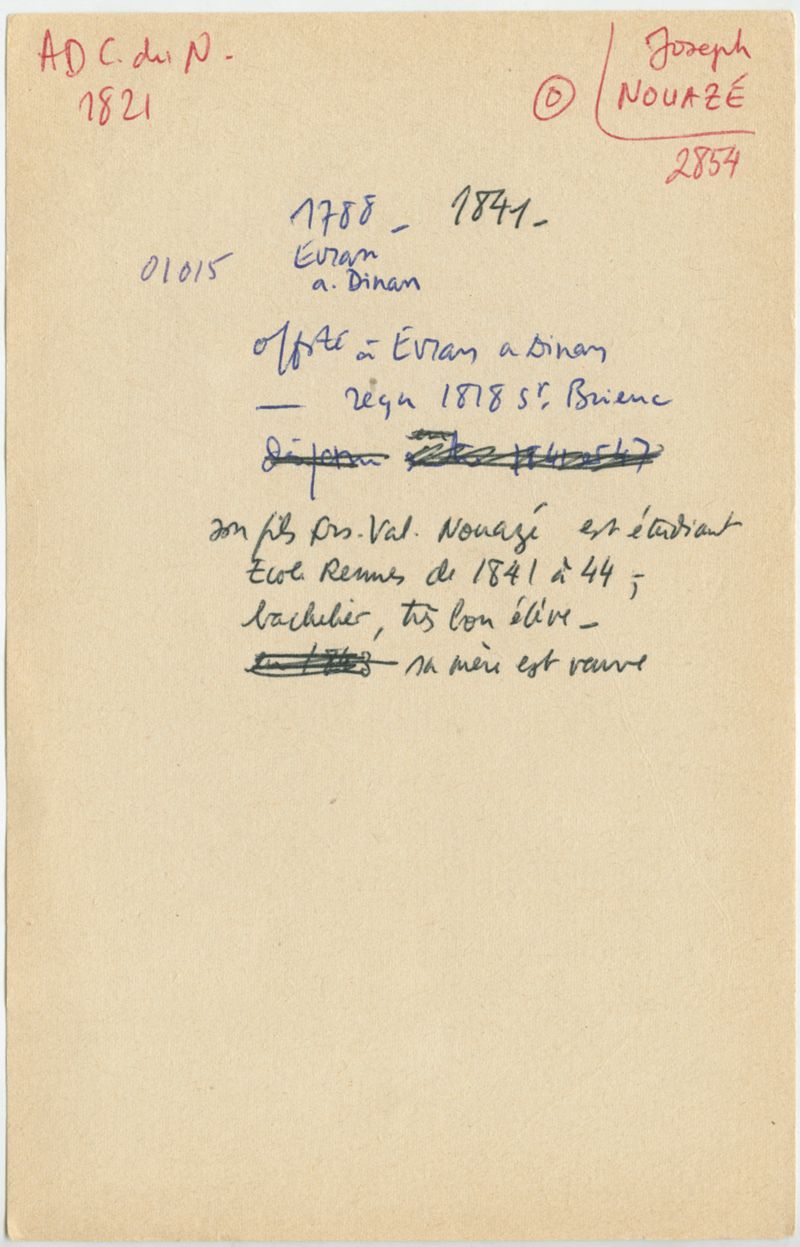 AD C. du N.
1821
Joseph
O NOUAZÉ
2854
1788 - 1841 -
01015 Evran
a. Dinan
offté à Evran a Dinan
— reçu 1818 St. Brieuc
son fils Frs. Val. Nouazé est étudiant
Ecole Rennes de 1841 à 44 ;
bachelier, très bon élève -
en 1843 sa mère est veuve